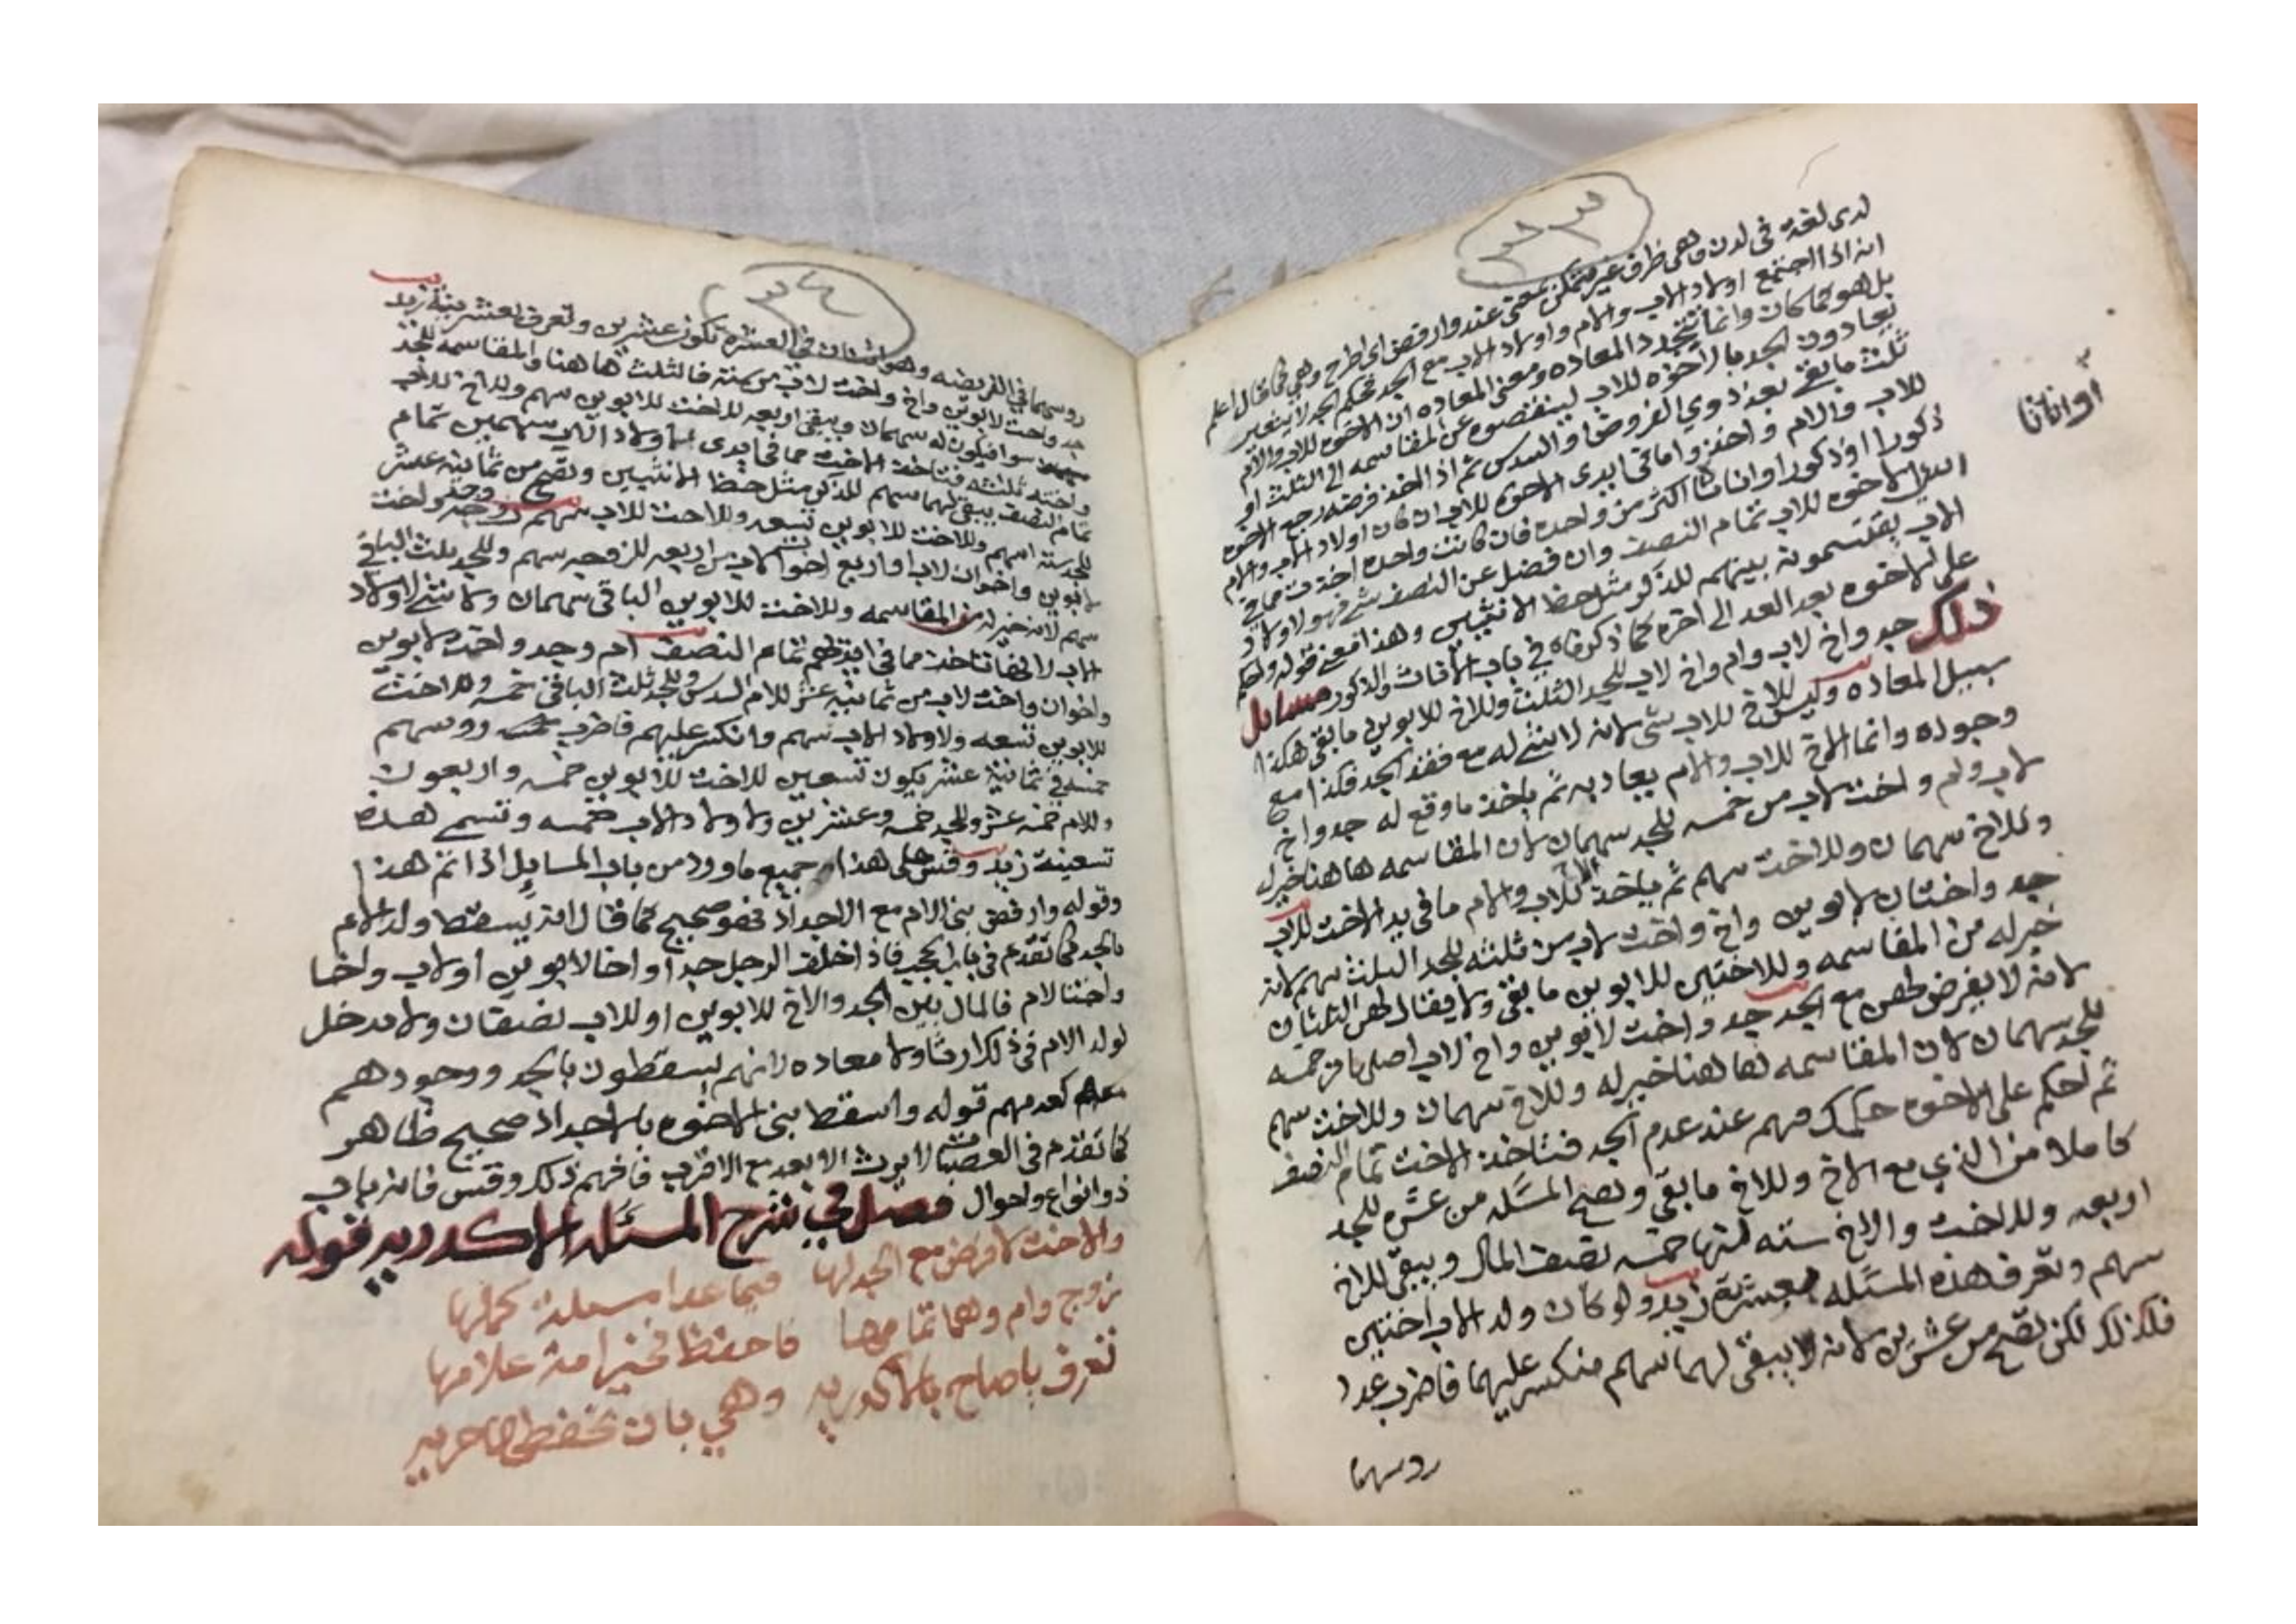 ٣٣
لدى لغة في لدن وهي ظرف غير متمكن بمعنى عند وارفض اي اطرح وهي كما قال اعلم
انه اذا اجتمع اولاد الاب والام واولاد الاب مع الجد فحكم الجد لا يتغير
بل هو كما كان وانما تتجدد المعاده ومعنى المعاده ان الاخوه للاب والام
يعادون الجد بالاخوه للاب لينقصوه عن المقاسمه الى الثلث او
ثلث ما بقي بعد ذوي الفروض او السدس ثم اذا اخذ فرضه رجع الاخوه
للاب والام واخذوا ما في ايدي الاخوه للاب ان كان اولاد الاب والام
ذكورا او ذكورا واناثا اكثر من واحده فان كانت واحده اخذت مما في
اوانا
ايدي الاخوه للاب تمام النصف وان فضل عن النصف شي فهو لاولاد
الاب يقتسمونه بينهم للذكر مثل حظ الانثيين وهذا معنى قوله واحكم
على الاخوه بعد العد الى اخره كما ذكرناه في باب الاناث والذكور مسايل
ذلك جد واخ لاب وام واخ لاب للجد الثلث وللاخ للابوين ما بقي هكذا
سبيل المعاده وليس للاخ للاب شي لانه لا شي له مع فقد الجد فكذا مع
وجوده وانما الاخ للاب والام يعاد به ثم ياخذ ما وقع له جد واخ
لاب وام واخت لاب من خمسه للجد سهمان لان المقاسمه هاهنا خير له
وللاخ سهمان وللاخت سهم ثم ياخذ الاخ للاب والام ما في يد الاخت للاب
جد واختان لابوين واخ واخت لاب من ثلثه للجد الثلث سهم لانه
خير له من المقاسمه وللاختين للابوين ما بقي ولا يقال لهن الثلثان
لانه لا يفرض لهن مع الجد جد واخت لابوين واخ لاب اصلها من خمسه
للجد سهمان لان المقاسمه هاهنا خير له وللاخ سهمان وللاخت سهم
ثم احكم على الاخوه حكمك فيهم عند عدم الجد فتاخذ الاخت تمام النصف
كاملا من الذي مع الاخ وللاخ ما بقي وتصح المسئله من عشره للجد
اربعه وللاخت والاخ سته لها خمسه نصف المال ويبقى للاخ
سهم وتعرف هذه المسئله بعشرية زيد ولو كان ولد الاب اختين
فكذلك لكن تصح من عشرين لانه لا يبقى لهما سهم منكسر عليهما فاضرب عدد
روسهما
٣٤
روسهما في الفريضه وهو اثنان في العشره تكون عشرين وتعرف بعشرينية زيد
جد واخت لابوين واخ واخت لاب من سته فالثلث هاهنا والمقاسمه للجد
سوا فيكون له سهمان ويبقى اربعه للاخت للابوين سهم وللاخ للاب
واخته ثلثه فتاخذ الاخت مما في ايدي اولاد الاب سهمين تمام
تمام النصف يبقى لهما سهم للذكر مثل حظ الانثيين وتصح من ثمانية عشر
للجد سته اسهم وللاخت للابوين تسعه وللاخت للاب سهم زوجه وجد واخت
لابوين واخوان لاب او اربع اخوات لاب من اربعه للزوجه سهم وللجد ثلث الباقي
سهم لانه خير له من المقاسمه وللاخت للابوين الباقي سهمان ولا شي لاولاد
الاب لانها تاخذ مما في ايديهم تمام النصف ام وجد واخت لابوين
واخوان واخت لاب من ثمانية عشر للام السدس وللجد ثلث الباقي خمسه وللاخت
للابوين تسعه ولاولاد الاب سهم وانكسر عليهم فاضرب روسهم
خمسه في ثمانية عشر يكون تسعين للاخت للابوين خمسه واربعون
وللام خمسه عشر وللجد خمسه وعشرين ولاولاد الاب خمسه وتسمى هذه
تسعينة زيد وقس على هذا جميع ما ورد من باب المسايل اذا تم هذا
وقوله وارفض بني الام مع الاجداد فهو صحيح كما قال انه يسقط ولد الام
بالجد كما تقدم في باب الحجب فاذا خلف الرجل جدا واخا لابوين او لاب واخا
واختا لام فالمال بين الجد والاخ للابوين او للاب نصفان ولا مدخل
لولد الام في ذلك ارثا ولا معاده لانهم يسقطون بالجد ووجودهم
معهم كعدمهم قوله واسقط بني الاخوه بالاجداد صحيح ظاهر
كما تقدم في العصبات لا يرث الابعد مع الاقرب فافهم ذلك وقس فانه باب
ذو انواع واحوال فصل في شرح المسئله الاكدريه قوله
والاخت لا فرض مع الجد لها فيما عدا مسئلة كملها
زوج وام وهما تمامها فاحفظ فخير امة علامها
تعرف يا صاح بالاكدريه وهي بان تحفظها حريه